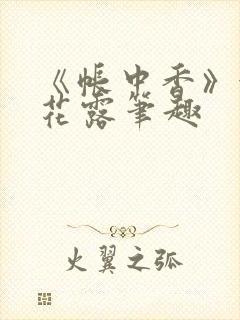 《帐中香》
花露笔趣
火翼之弧